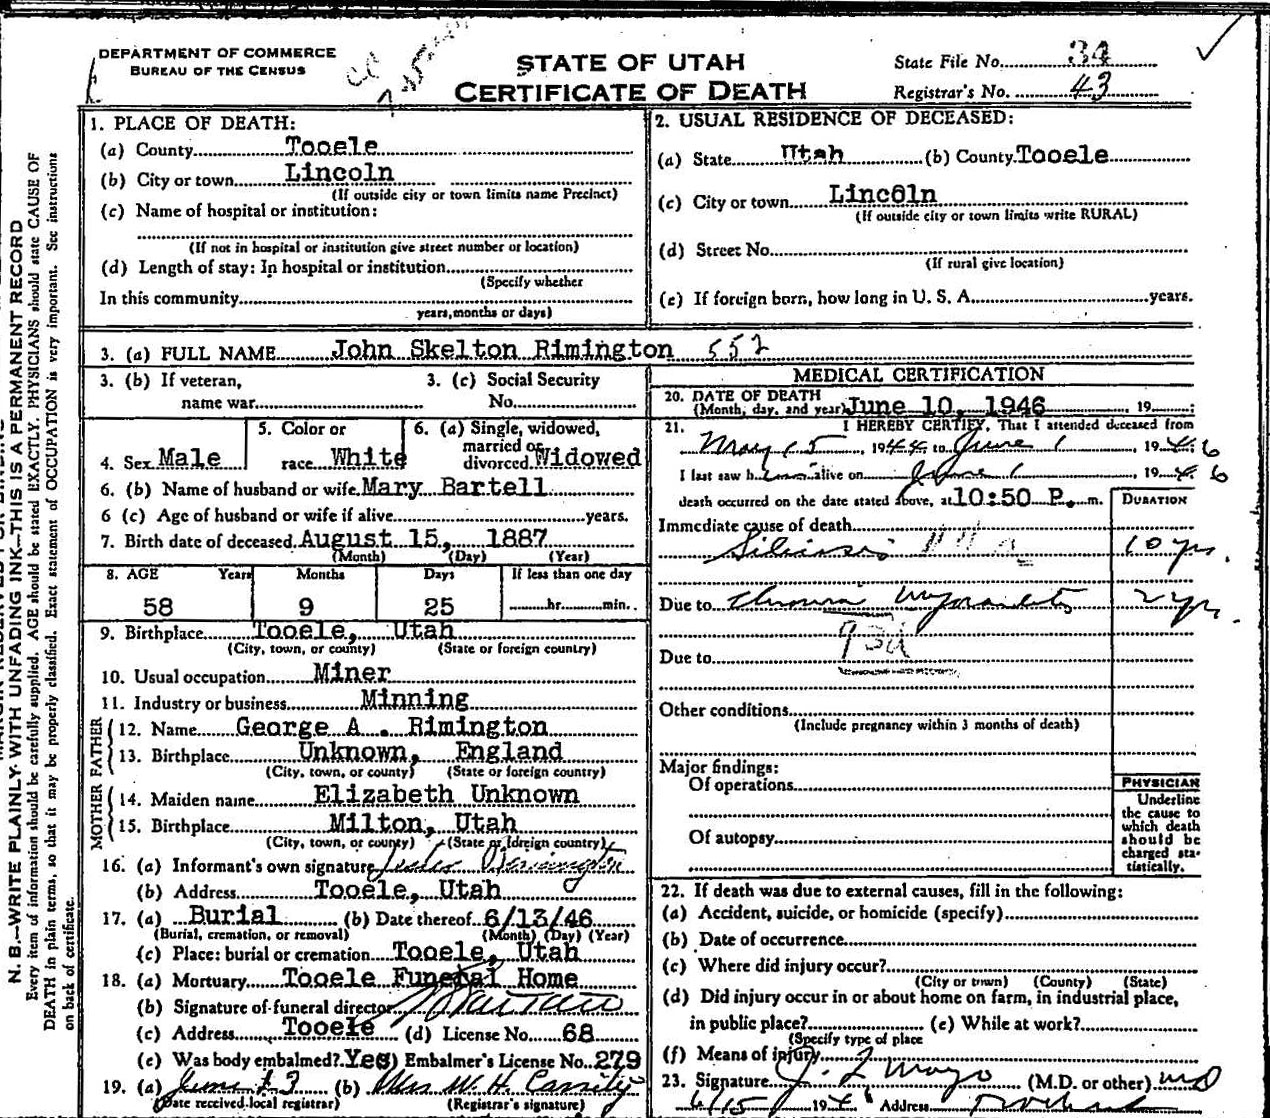 DEPARTMENT OF COMMERCE
BUREAU OF THE CENSUS
STATE OF UTAH
CERTIFICATE OF DEATH
State File No. 34
Registrar's No. 43
N. B.—WRITE PLAINLY WITH UNFADING INK—THIS IS A PERMANENT RECORD
Every item of information should be carefully supplied. AGE should be stated EXACTLY. PHYSICIANS should state CAUSE OF
DEATH in plain terms, so that it may be properly classified. Exact statement of OCCUPATION is very important. See instructions
on back of certificate.
1. PLACE OF DEATH:
(a) County Tooele
(b) City or town Lincoln
(If outside city or town limits name Precinct)
(c) Name of hospital or institution:
(If not in hospital or institution give street number or location)
(d) Length of stay: In hospital or institution
(Specify whether
In this community
years, months or days)
2. USUAL RESIDENCE OF DECEASED:
(a) State Utah (b) County Tooele
(c) City or town Lincoln
(If outside city or town limits write RURAL)
(d) Street No.
(If rural give location)
(e) If foreign born, how long in U. S. A. years.
3. (a) FULL NAME John Skelton Rimington 552
3. (b) If veteran, name war
3. (c) Social Security No.
4. Sex Male
5. Color or race White
6. (a) Single, widowed, married or divorced Widowed
6. (b) Name of husband or wife Mary Bartell
6 (c) Age of husband or wife if alive years.
7. Birth date of deceased August 15, 1887
(Month) (Day) (Year)
8. AGE Years Months Days If less than one day
58 9 25 hr. min.
9. Birthplace Tooele, Utah
(City, town, or county) (State or foreign country)
10. Usual occupation Miner
11. Industry or business Minning
FATHER
12. Name George A . Rimington
13. Birthplace Unknown, England
(City, town, or county) (State or foreign country)
MOTHER
14. Maiden name Elizabeth Unknown
15. Birthplace Milton, Utah
(City, town, or county) (State or foreign country)
16. (a) Informant's own signature Rimington
(b) Address Tooele, Utah
17. (a) Burial (b) Date thereof 6/13/46
(Burial, cremation, or removal) (Month) (Day) (Year)
(c) Place: burial or cremation Tooele, Utah
18. (a) Mortuary Tooele Funeral Home
(b) Signature of funeral director
(c) Address Tooele (d) License No. 68
(e) Was body embalmed? Yes) Embalmer's License No. 279
19. (a) June 13 (b) Mrs W. H. Cassity
(Date received local registrar) (Registrar's signature)
MEDICAL CERTIFICATION
20. DATE OF DEATH
(Month, day, and year) June 10, 1946 19
21. I HEREBY CERTIFY, That I attended deceased from
May 15, 1944 to June 1, 1946
I last saw him alive on June 1 1946
death occurred on the date stated above, at 10:50 P. m.
DURATION
Immediate cause of death
Silicosis 10 yrs.
Due to Chronic Myocarditis 2 yrs.
93d
Due to
Other conditions
(Include pregnancy within 3 months of death)
Major findings:
Of operations
Of autopsy
PHYSICIAN
Underline
the cause to
which death
should be
charged sta-
tistically.
22. If death was due to external causes, fill in the following:
(a) Accident, suicide, or homicide (specify)
(b) Date of occurrence
(c) Where did injury occur?
(City or town) (County) (State)
(d) Did injury occur in or about home on farm, in industrial place,
in public place? (e) While at work?
(Specify type of place
(f) Means of injury
23. Signature J. F. Mayo (M.D. or other) MD
6/15 194 Address